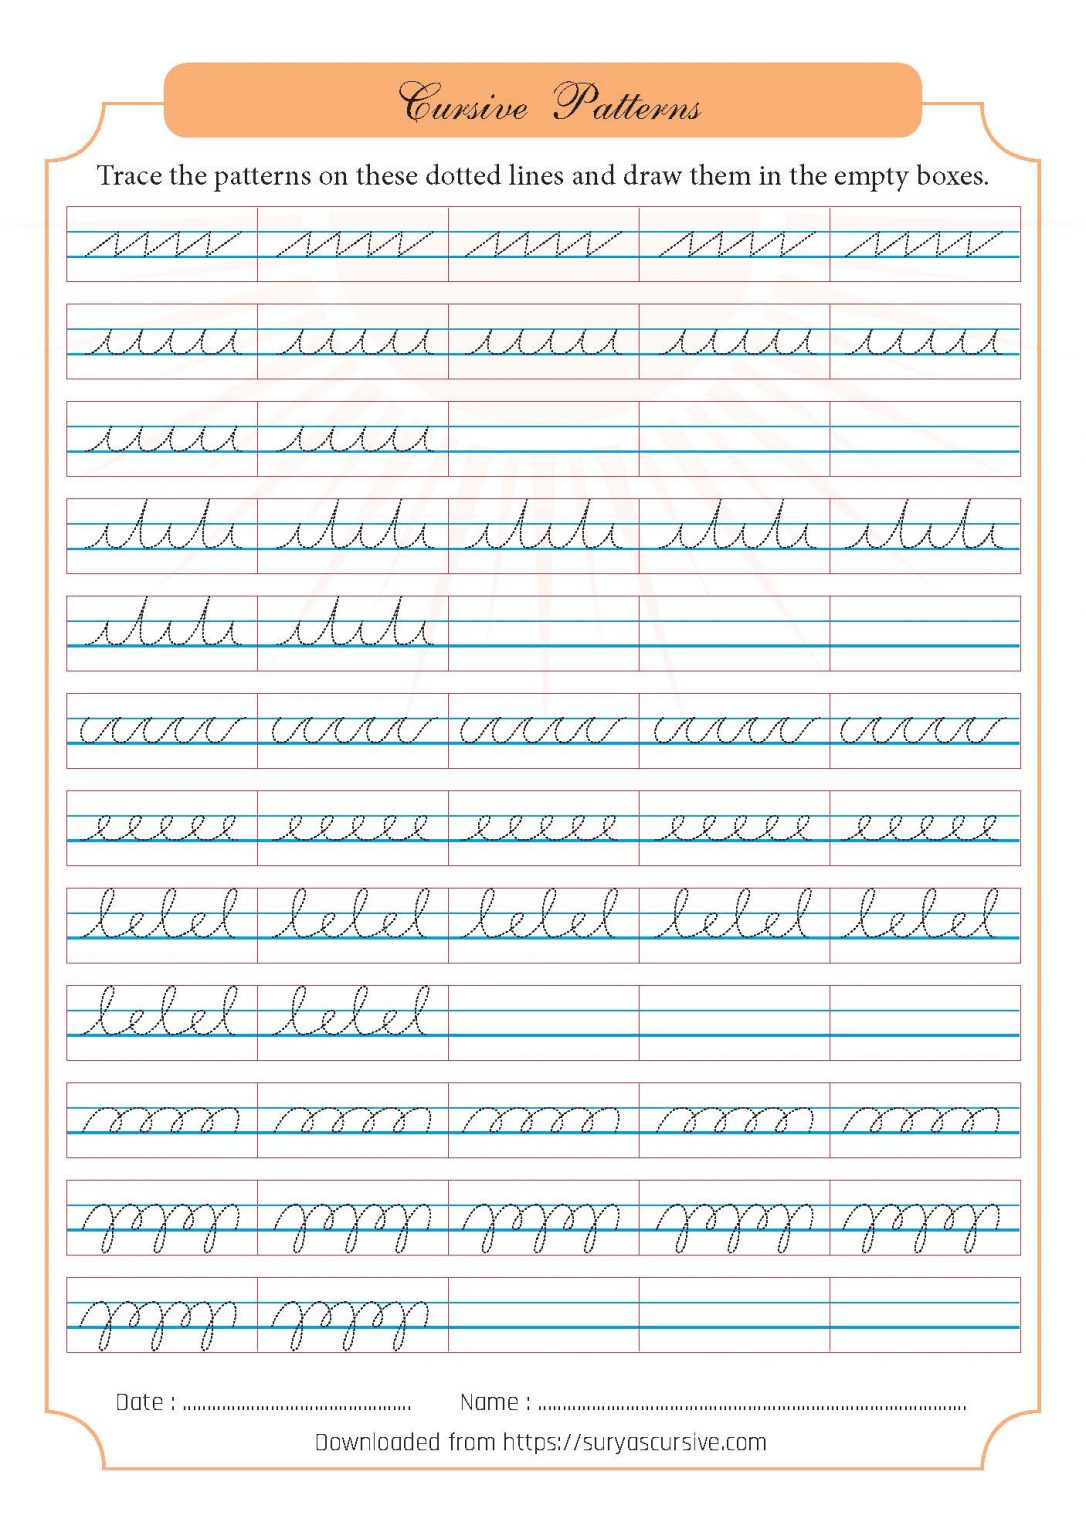 Cursive Patterns
Trace the patterns on these dotted lines and draw them in the empty boxes.
Date : ................................................ Name : ..........................................................................................
Downloaded from https://suryascursive.com